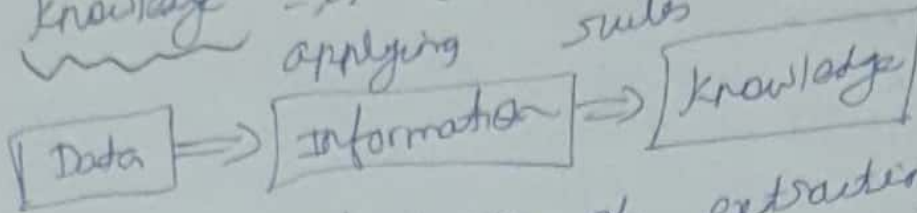 Knowledge
applying rules
Data ⇒ Information ⇒ Knowledge
extraction